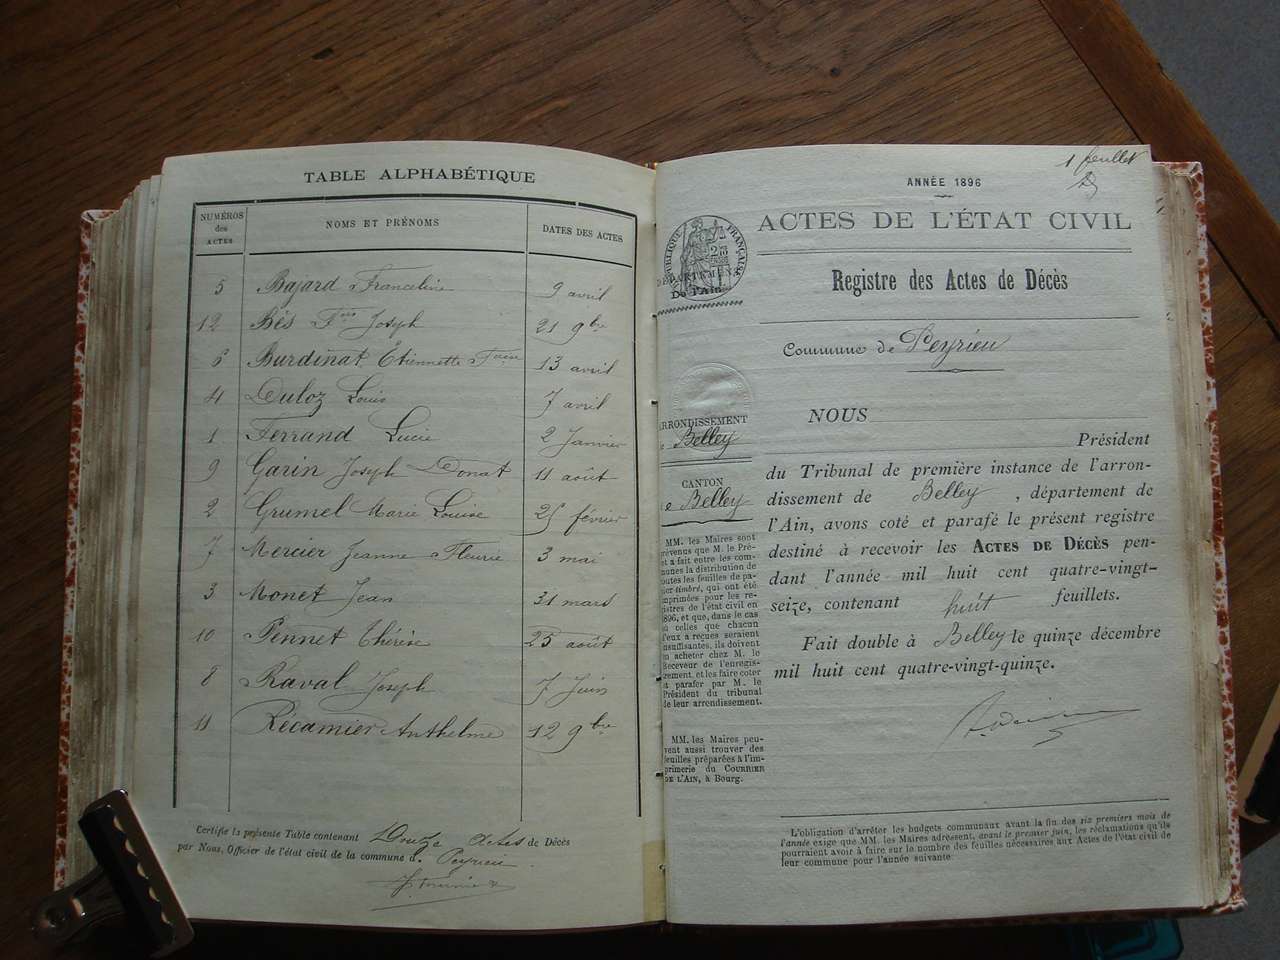 TABLE ALPHABÉTIQUE
NUMÉROS des ACTES NOMS ET PRÉNOMS DATES DES ACTES
5 Bajard Franceline 9 avril
12 Bès Fçois Joseph 21 9bre
6 Burdinat Étiennette 13 avril
4 Duloz Louis 7 avril
1 Ferrand Lucie 2 Janvier
9 Garin Joseph Donat 11 août
2 Grumel Marie Louise 25 février
7 Mercier Jeanne Fleurie 3 mai
3 Monet Jean 31 mars
10 Pennet Thérèse 25 août
8 Raval Joseph 7 Juin
11 Récamier Anthelme 12 9bre
Certifié la présente Table contenant Douze actes de Décès
par Nous, Officier de l'état civil de la commune d. Peyrieu
1 feuillet
ANNÉE 1896
ACTES DE L'ÉTAT CIVIL
RÉPUBLIQUE FRANÇAISE
DÉPARTEMENT
De l'Ain
Registre des Actes de Décès
Commune de Peyrieu
ARRONDISSEMENT
e Belley
CANTON
e Belley
MM. les Maires sont
prévenus que M. le Pré-
et a fait entre les com-
munes la distribution de
toutes les feuilles de pa-
ier timbré, qui ont été
imprimées pour les re-
istres de l'état civil en
1896, et que, dans le cas
où celles que chacun
d'eux a reçues seraient
insuffisantes, ils doivent
en acheter chez M. le
Receveur de l'enregis-
trement, et les faire coter
et parafer par M. le
Président du tribunal
de leur arrondissement.
MM. les Maires peu-
vent aussi trouver des
feuilles préparées à l'im-
primerie du COURRIER
DE L'AIN, à Bourg.
NOUS
Président
du Tribunal de première instance de l'arron-
dissement de Belley, département de
l'Ain, avons coté et parafé le présent registre
destiné à recevoir les ACTES DE DÉCÈS pen-
dant l'année mil huit cent quatre-vingt-
seize, contenant huit feuillets.
Fait double à Belley le quinze décembre
mil huit cent quatre-vingt-quinze.
L'obligation d'arrêter les budgets communaux avant la fin des six premiers mois de
l'année exige que MM. les Maires adressent, avant le premier juin, les réclamations qu'ils
pourraient avoir à faire sur le nombre des feuilles nécessaires aux Actes de l'état civil de
leur commune pour l'année suivante